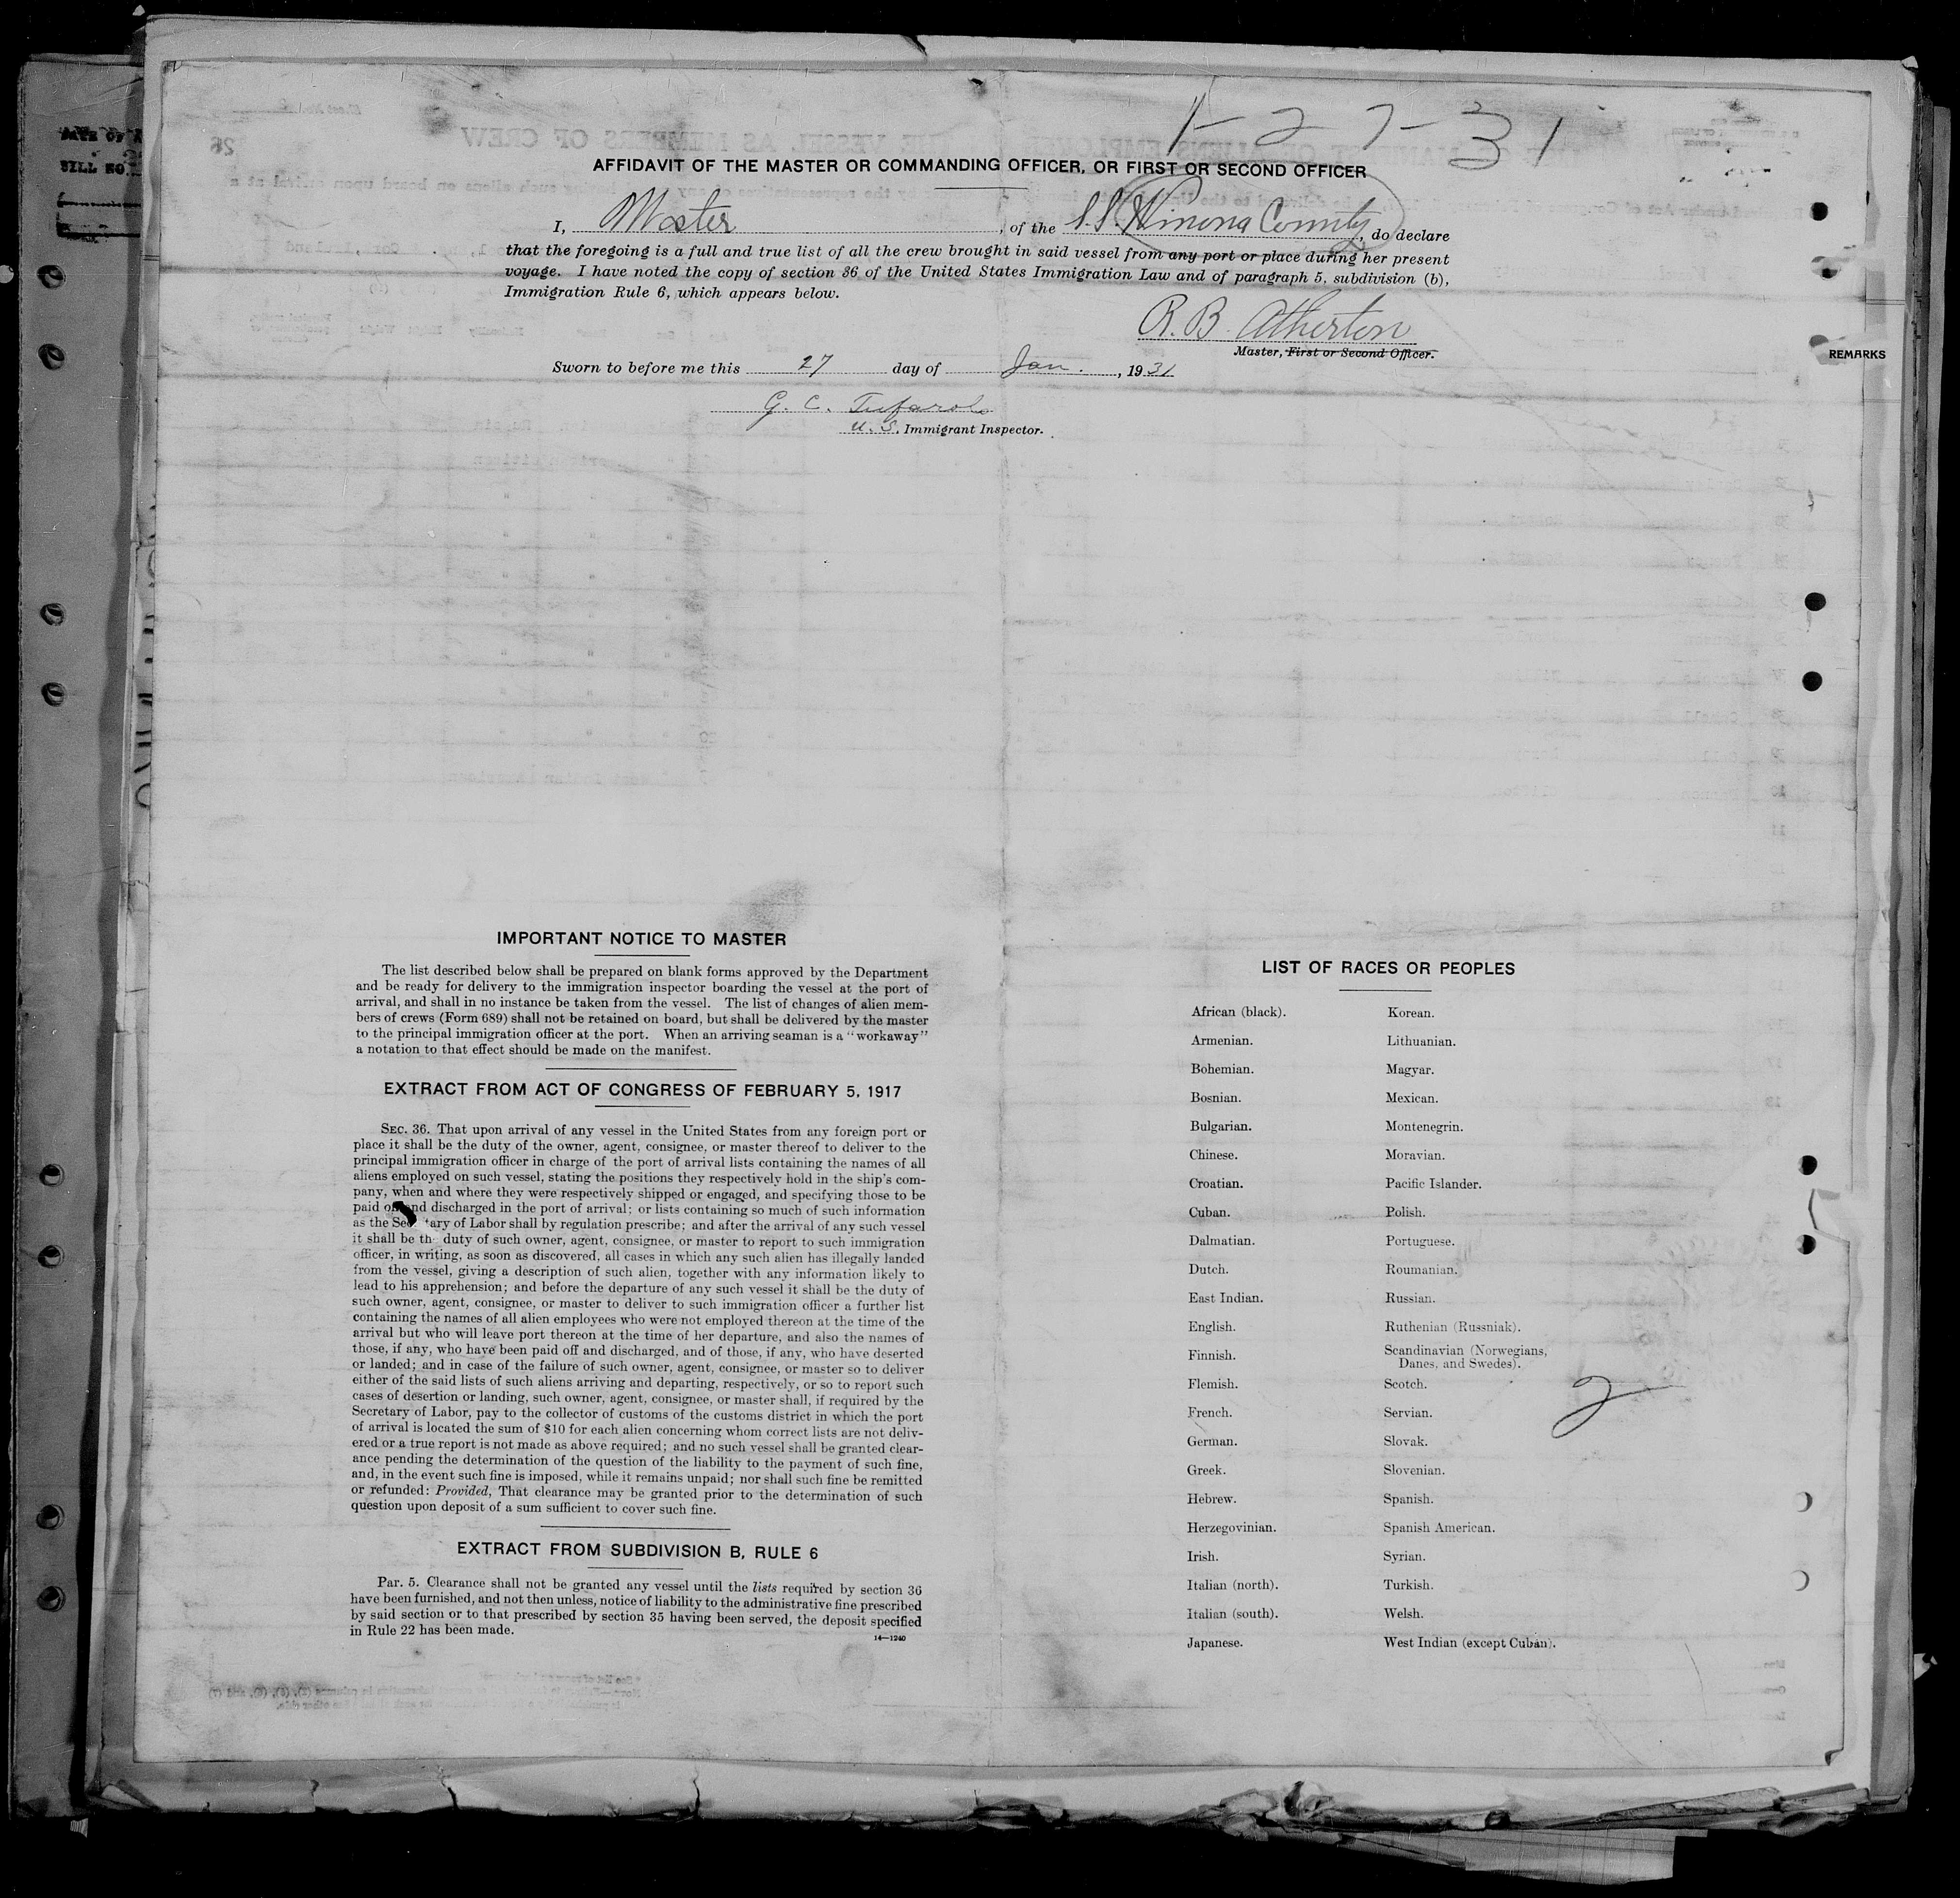 1-27-31
AFFIDAVIT OF THE MASTER OR COMMANDING OFFICER, OR FIRST OR SECOND OFFICER
I, Master, of the S.S. Winona County, do declare
that the foregoing is a full and true list of all the crew brought in said vessel from any port or place during her present
voyage. I have noted the copy of section 36 of the United States Immigration Law and of paragraph 5, subdivision (b),
Immigration Rule 6, which appears below.
R. B. Atherton
Master, First or Second Officer.
REMARKS
Sworn to before me this 27 day of Jan., 1931
G. C.
U. S. Immigrant Inspector.
IMPORTANT NOTICE TO MASTER
The list described below shall be prepared on blank forms approved by the Department
and be ready for delivery to the immigration inspector boarding the vessel at the port of
arrival, and shall in no instance be taken from the vessel. The list of changes of alien mem-
bers of crews (Form 689) shall not be retained on board, but shall be delivered by the master
to the principal immigration officer at the port. When an arriving seaman is a "workaway"
a notation to that effect should be made on the manifest.
EXTRACT FROM ACT OF CONGRESS OF FEBRUARY 5, 1917
SEC. 36. That upon arrival of any vessel in the United States from any foreign port or
place it shall be the duty of the owner, agent, consignee, or master thereof to deliver to the
principal immigration officer in charge of the port of arrival lists containing the names of all
aliens employed on such vessel, stating the positions they respectively hold in the ship's com-
pany, when and where they were respectively shipped or engaged, and specifying those to be
paid off and discharged in the port of arrival; or lists containing so much of such information
as the Secretary of Labor shall by regulation prescribe; and after the arrival of any such vessel
it shall be the duty of such owner, agent, consignee, or master to report to such immigration
officer, in writing, as soon as discovered, all cases in which any such alien has illegally landed
from the vessel, giving a description of such alien, together with any information likely to
lead to his apprehension; and before the departure of any such vessel it shall be the duty of
such owner, agent, consignee, or master to deliver to such immigration officer a further list
containing the names of all alien employees who were not employed thereon at the time of the
arrival but who will leave port thereon at the time of her departure, and also the names of
those, if any, who have been paid off and discharged, and of those, if any, who have deserted
or landed; and in case of the failure of such owner, agent, consignee, or master so to deliver
either of the said lists of such aliens arriving and departing, respectively, or so to report such
cases of desertion or landing, such owner, agent, consignee, or master shall, if required by the
Secretary of Labor, pay to the collector of customs of the customs district in which the port
of arrival is located the sum of $10 for each alien concerning whom correct lists are not deliv-
ered or a true report is not made as above required; and no such vessel shall be granted clear-
ance pending the determination of the question of the liability to the payment of such fine,
and, in the event such fine is imposed, while it remains unpaid; nor shall such fine be remitted
or refunded: Provided, That clearance may be granted prior to the determination of such
question upon deposit of a sum sufficient to cover such fine.
EXTRACT FROM SUBDIVISION B, RULE 6
Par. 5. Clearance shall not be granted any vessel until the lists required by section 36
have been furnished, and not then unless, notice of liability to the administrative fine prescribed
by said section or to that prescribed by section 35 having been served, the deposit specified
in Rule 22 has been made.
14—1240
LIST OF RACES OR PEOPLES
African (black). Korean.
Armenian. Lithuanian.
Bohemian. Magyar.
Bosnian. Mexican.
Bulgarian. Montenegrin.
Chinese. Moravian.
Croatian. Pacific Islander.
Cuban. Polish.
Dalmatian. Portuguese.
Dutch. Roumanian.
East Indian. Russian.
English. Ruthenian (Russniak).
Finnish. Scandinavian (Norwegians,
Danes, and Swedes).
Flemish. Scotch.
2
French. Servian.
German. Slovak.
Greek. Slovenian.
Hebrew. Spanish.
Herzegovinian. Spanish American.
Irish. Syrian.
Italian (north). Turkish.
Italian (south). Welsh.
Japanese. West Indian (except Cuban).